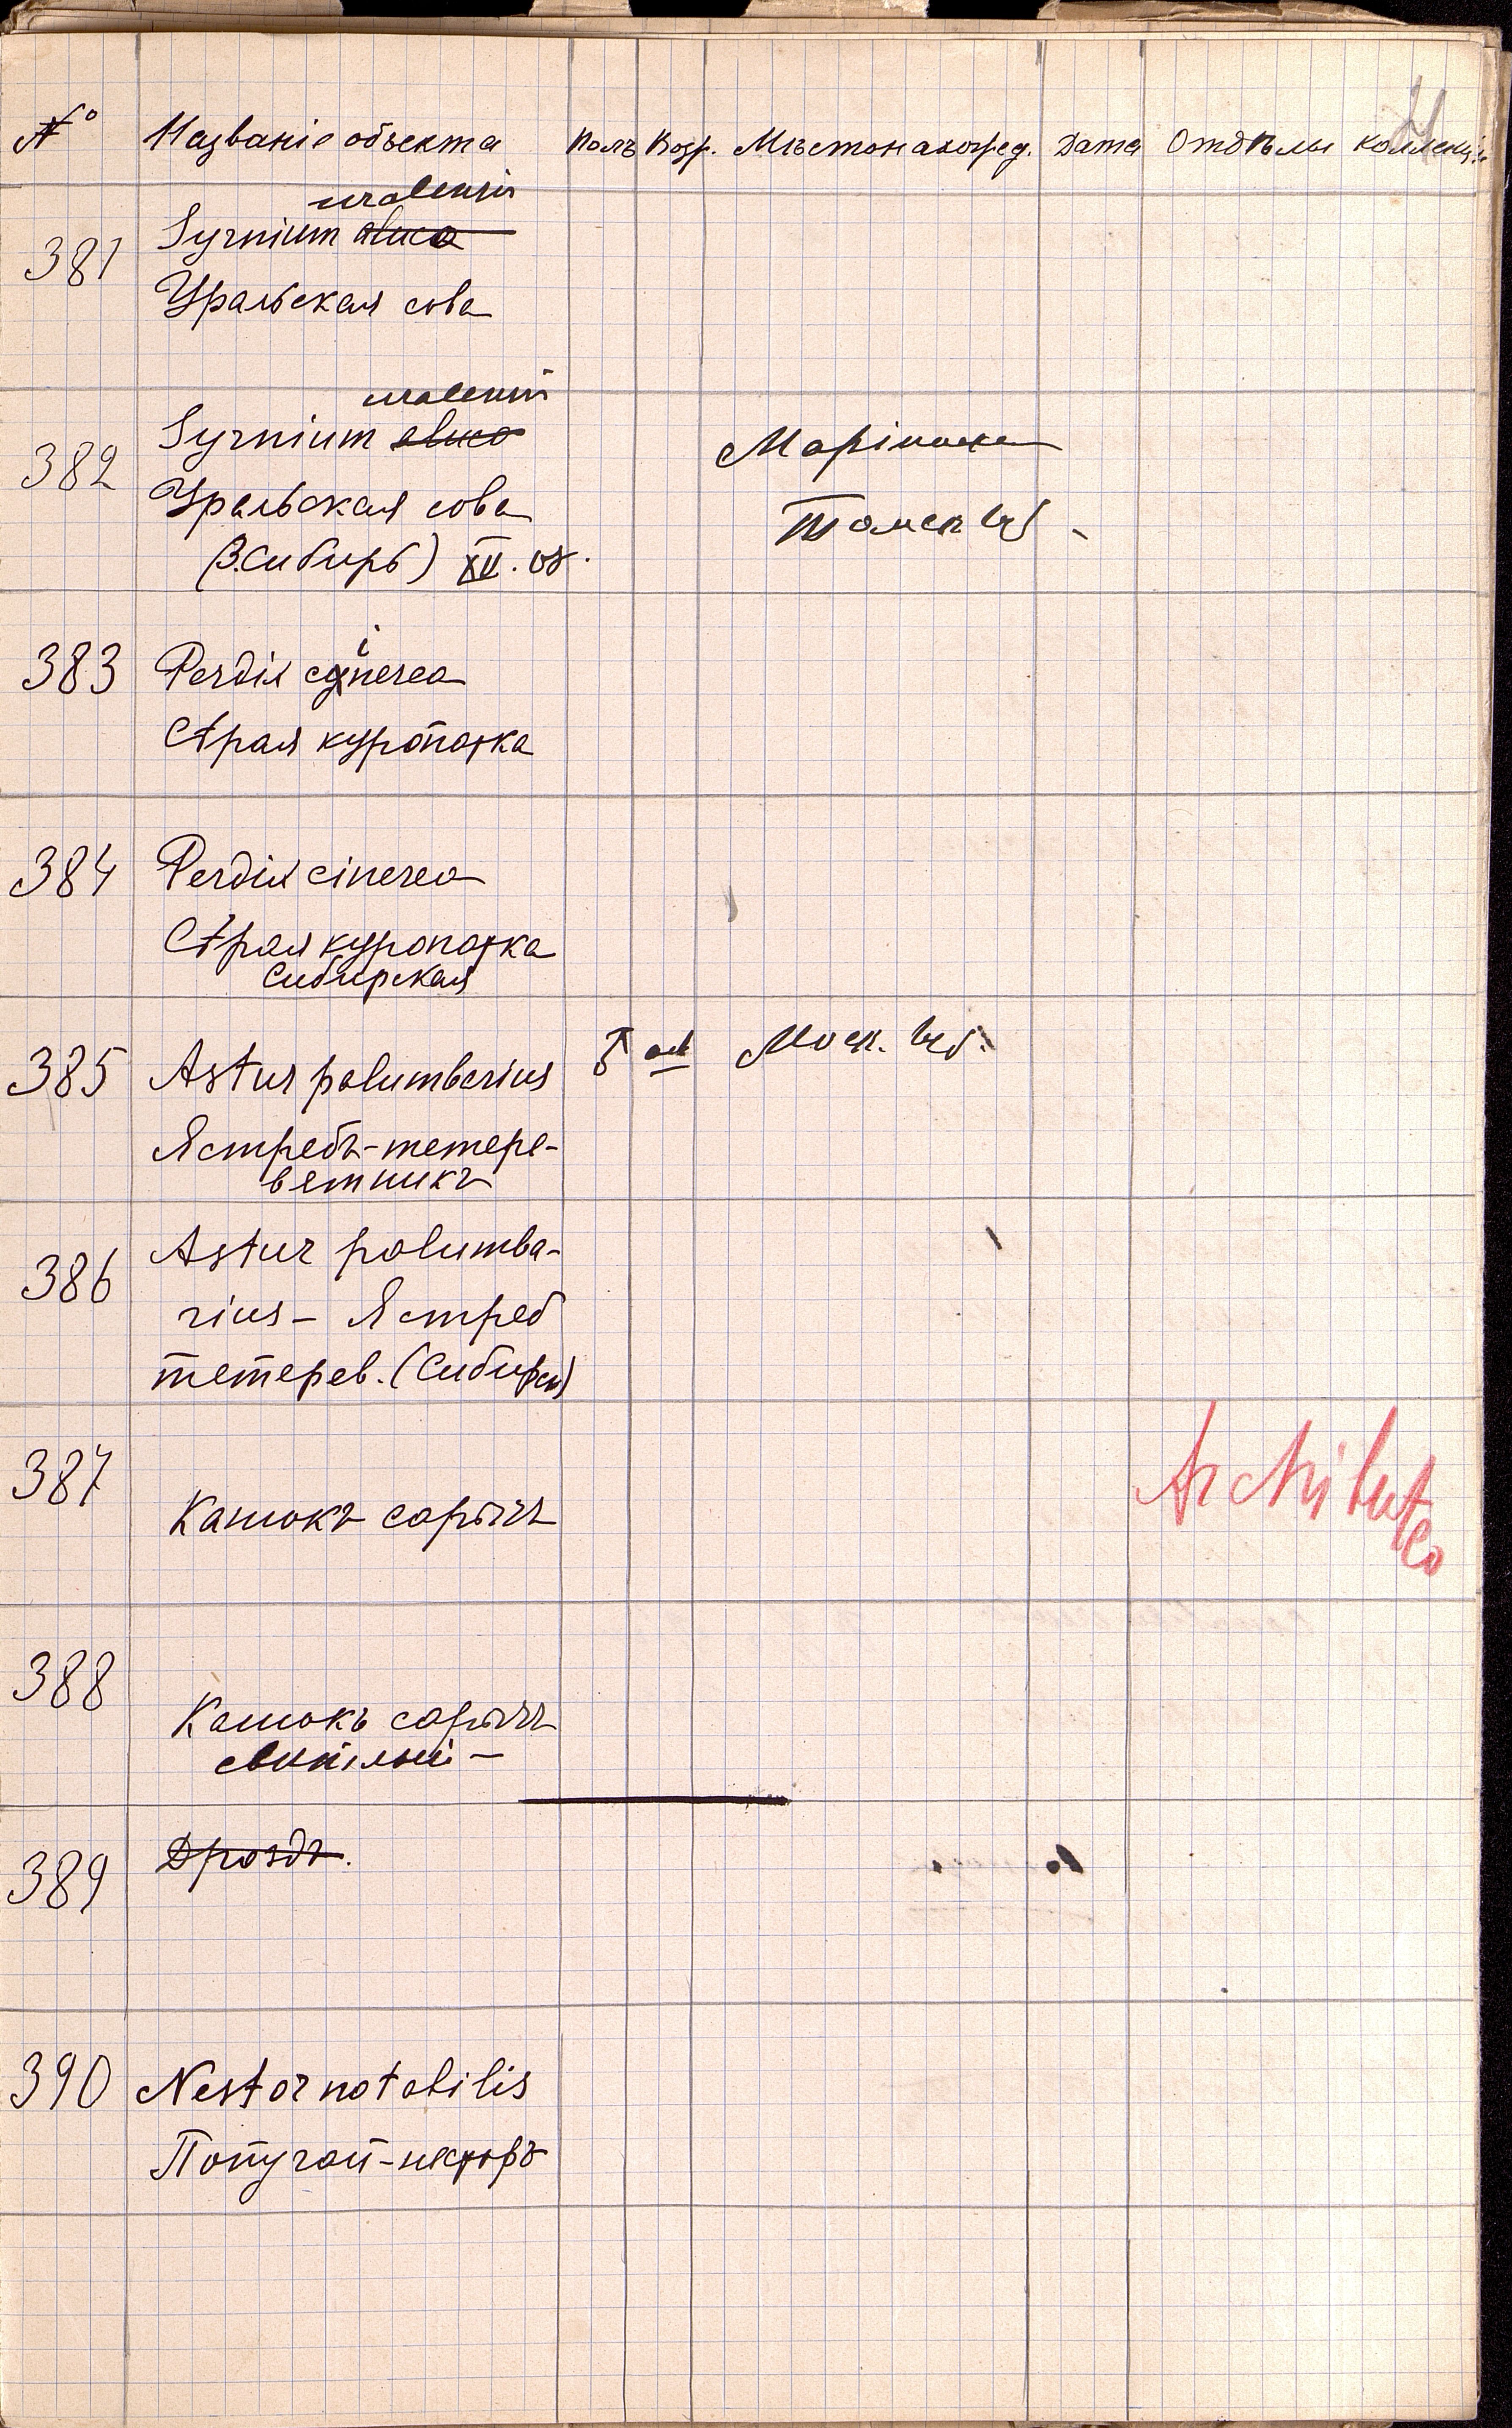 № Названіе объекта Полъ Возр. Мѣстонахожд. Дата Отдѣлы коллекціи
uralensis
381 Syrnium aluco
Уральская сова
uralensis
382 Syrnium aluco Маріинск
Уральская сова Томск губ
(З.Сибирь) XII.08.
i
383 Perdix cynerea
Сѣрая куропатка
384 Perdix cinerea
Сѣрая куропатка
Сибирская
385 Astur palumbarius ♂ ad Моск. губ.
Ястребъ-тетере-
вятникъ
386 Astur palumba-
rius - Ястреб
тетерев. (Сибирск)
387 Канюкъ сарычъ Archibuteo
388 Канюкъ сарычъ
свѣтлый -
389 Дроздъ.
390 Nestor notabilis
Попугай-несторъ